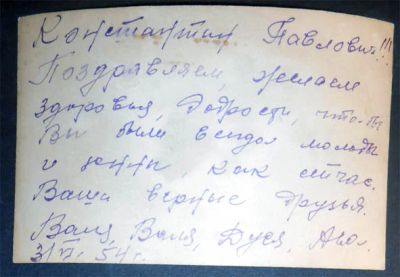 Константин Павлович!!!
Поздравляем, желаем
здоровья, бодрости, что-бы
Вы были всегда молоды
и юны, как сейчас.
Ваши верные друзья.
Валя, Ваня, Дуся,
54 г.